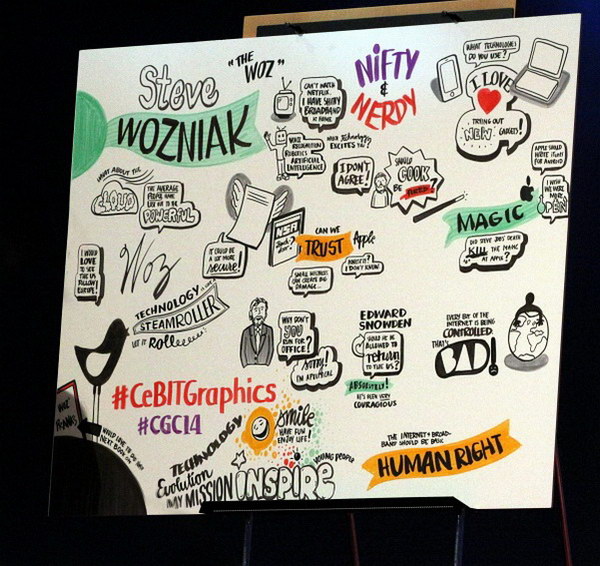 Steve
WOZNIAK
"THE
WOZ"
CAN'T WATCH
NETFLIX.
I HAVE SHITTY
BROADBAND
AT HOME
NIFTY
&
NERDY
WHAT TECHNOLOGIES
DO YOU USE?
I LOVE
TRYING OUT
NEW GADGETS!
VOICE
RECOGNITION
ROBOTICS
ARTIFICIAL
INTELLIGENCE
WHICH TECHNOLOGY
EXCITES YOU?
I DON'T
AGREE!
SHOULD
COOK
BE
APPLE SHOULD
WRITE iTUNES
FOR ANDROID
I WISH
WE WERE
MORE
OPEN
WHAT ABOUT THE
CLOUD
THE AVERAGE
PEOPLE
POWERFUL
MAGIC
DID STEVE JOBS' DEATH
KILL THE MAGIC
AT APPLE?
I WOULD
LOVE
TO SEE
THE US
FOLLOW
EUROPE!
Woz
IT COULD BE
A LOT MORE
secure!
NSA
CAN WE
TRUST
Apple
HONESTLY?
I DON'T KNOW
SMALL
CAN CREATE BIG
DAMAGE...
TECHNOLOGY IS LIKE A
STEAMROLLER
LET IT Rolleeeee!
WHY DON'T
YOU
RUN FOR
OFFICE?
Sorry!
I'M APOLITICAL
EDWARD
SNOWDEN
SHOULD HE BE
ALLOWED TO
return
TO THE US?
ABSOLUTELY!
HE'S BEEN VERY
COURAGEOUS
EVERY BIT OF THE
INTERNET IS BEING
CONTROLLED.
THAT'S
BAD!
#CeBITGraphics
#CGC14
smile
HAVE FUN
ENJOY LIFE!
TECHNOLOGY
Evolution
MY MISSION
INSPIRE
YOUNG PEOPLE
THE INTERNET & BROAD-
BAND SHOULD BE BASIC
HUMAN RIGHT